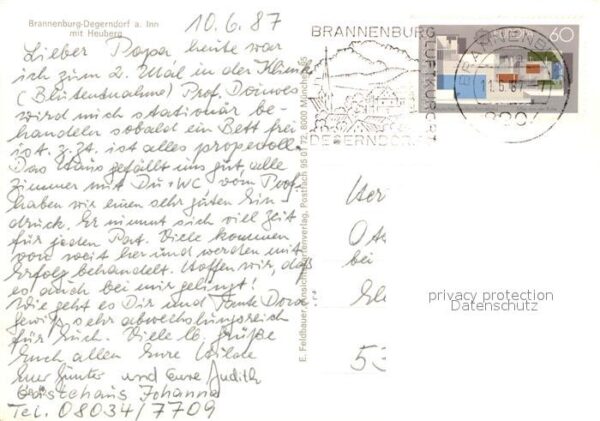 Brannenburg-Degerndorf a. Inn
mit Heuberg
10.6.87
Lieber Papa, heute war
ich zum 2. Mal in der Klinik
(Blutentnahme) Prof.
wird mich stationär be-
handeln sobald ein Bett frei
ist. z. Zt. ist alles propevoll.
Das Haus gefällt uns gut, alle
Zimmer mit Du+WC vom Prof.
haben wir einen sehr guten Ein
druck. Er nimmt sich viel Zeit
für jeden Pat. Viele kommen
von weit her und werden mit
Erfolg behandelt. Hoffen wir, daß
es auch bei mir gelingt!
Wie geht es Dir und Tante Dora?
gewiß sehr abwechslungsreich
für Euch. Viele lb. Grüße
Euch allen Eure Hilde
Euer Günter und Eure Judith
Gästehaus Johanna
Tel. 08034/7709
E. Feldbauer, Ansichtskartenverlag, Postfach 95 01 72, 8000 München 95
BRANNENBURG
LUFTKURORT
DEGERNDORF
BRANNENBURG
60
Her
bei
53
privacy protection
Datenschutz